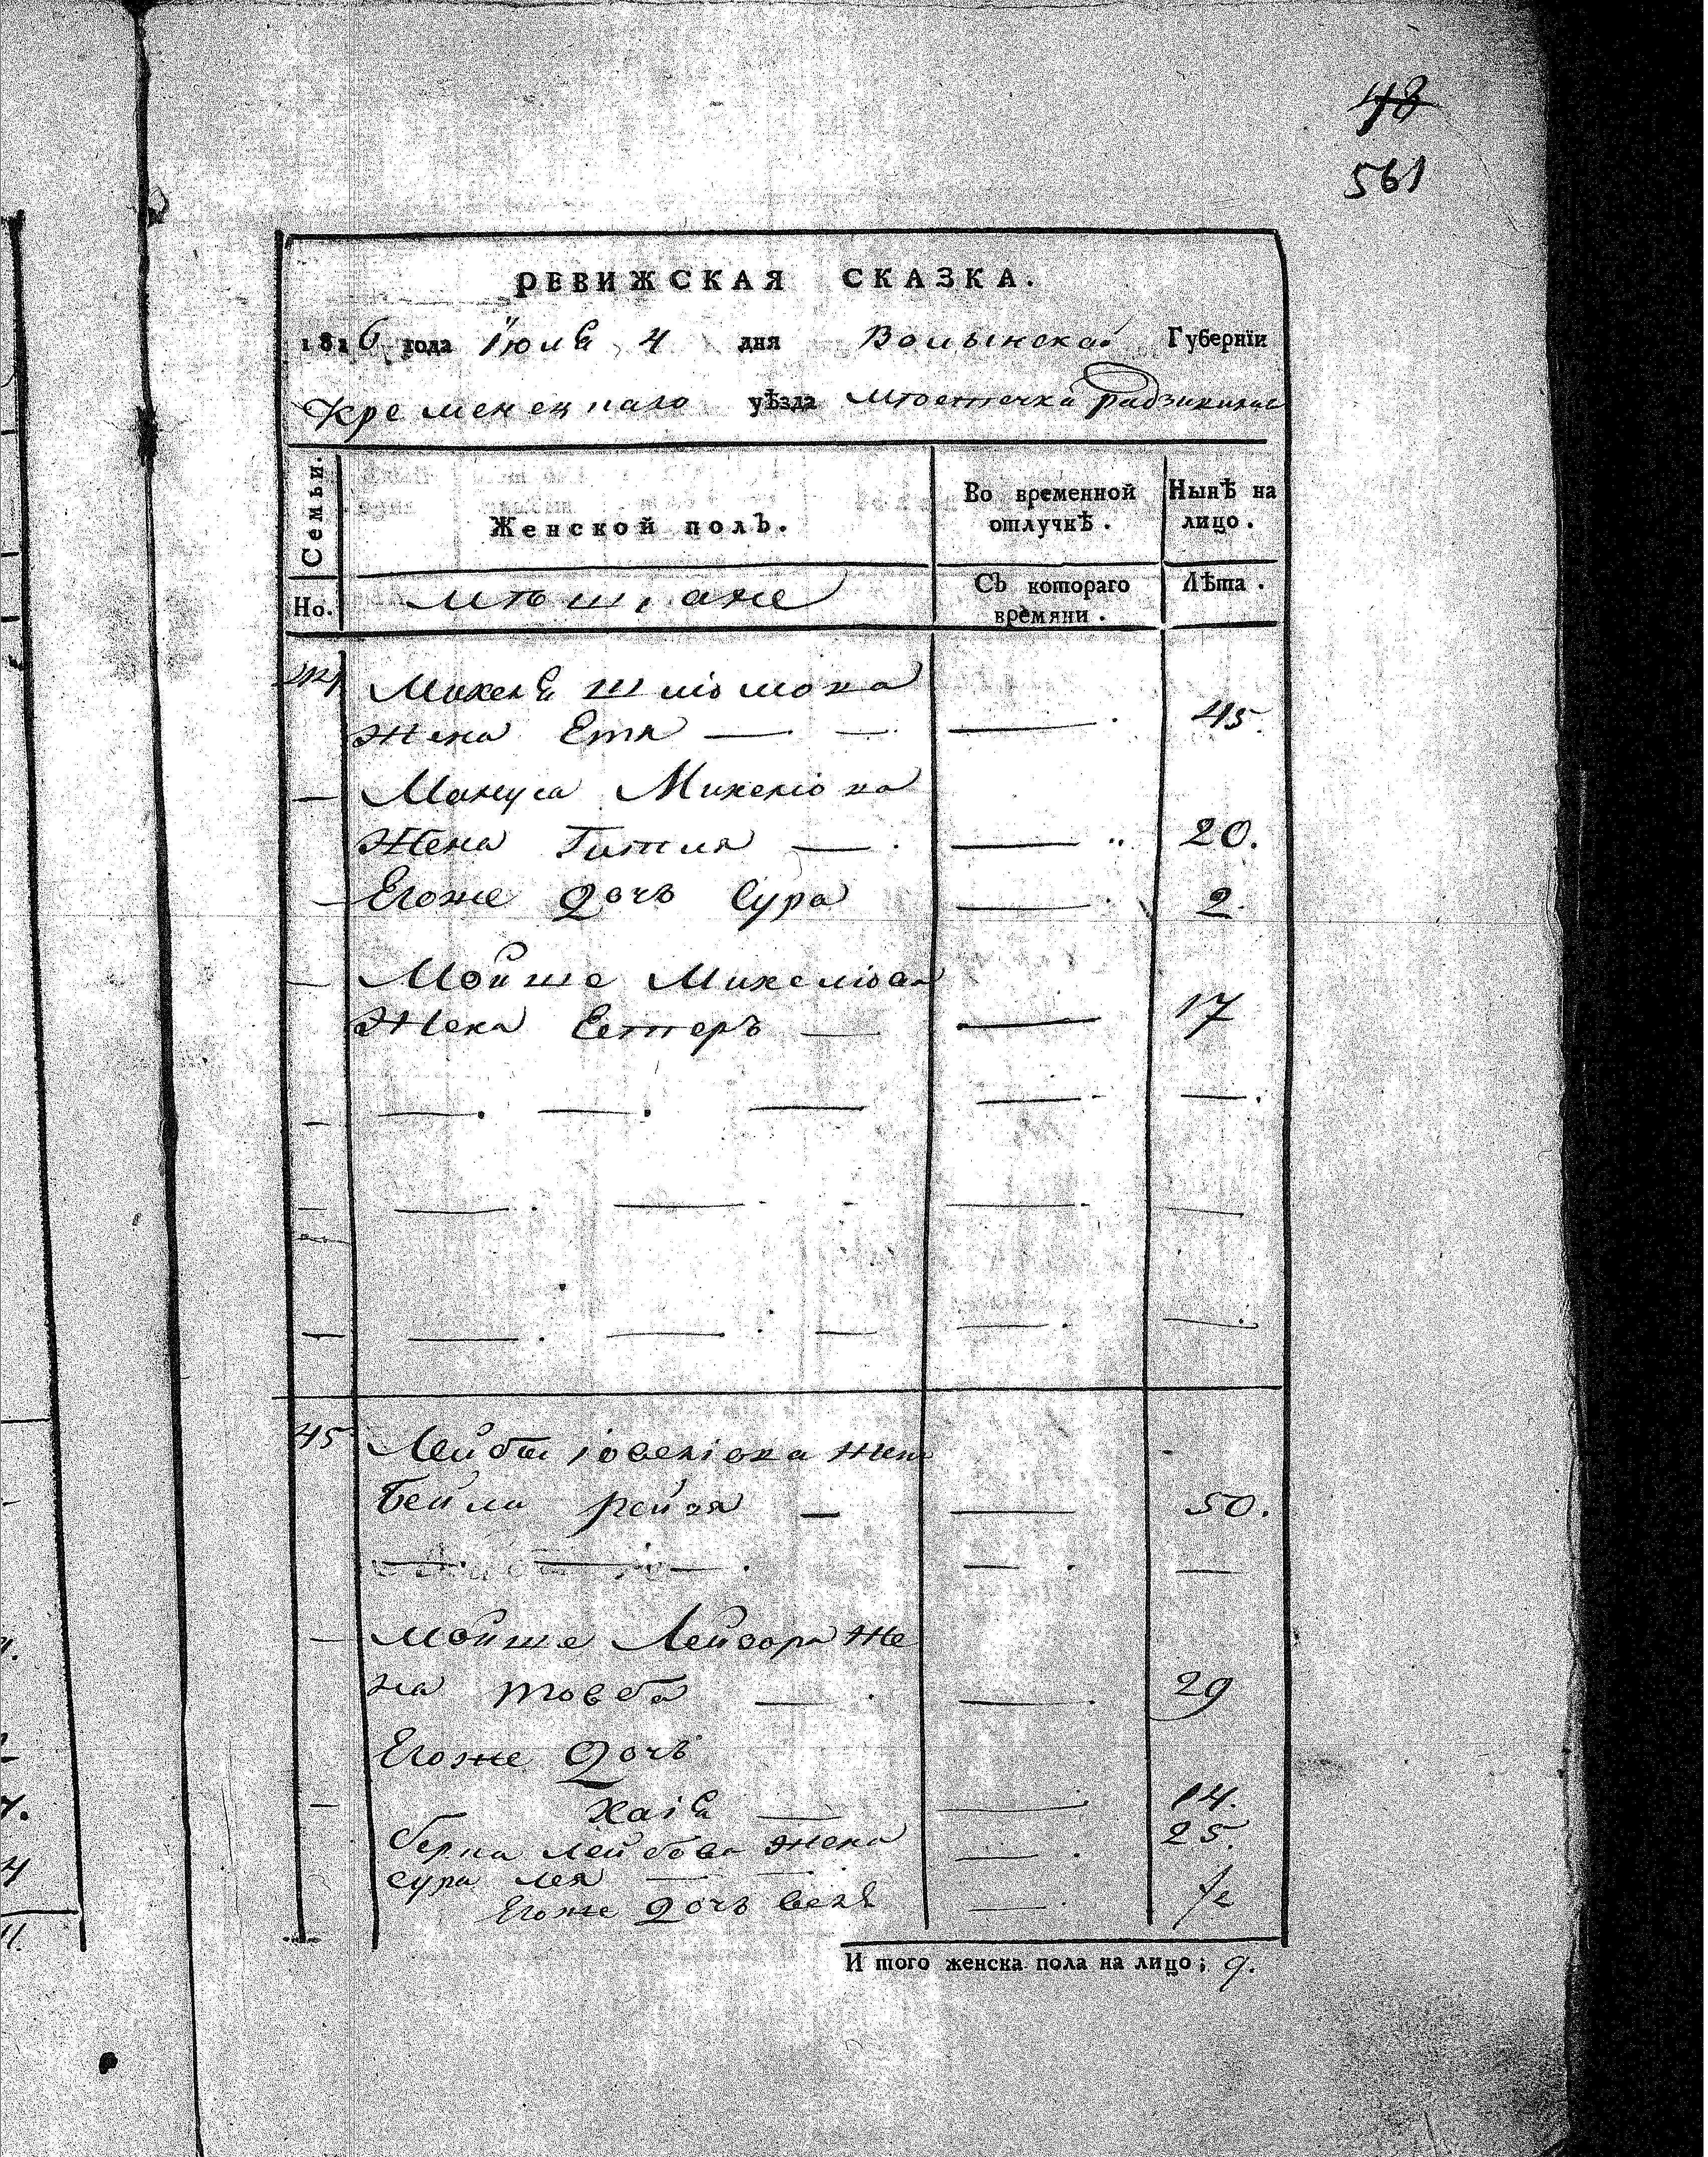 48
561
РЕВИЖСКАЯ СКАЗКА.
1816 года Іюля 4 дня Волынской Губернїи
Кременецкаго уѣзда мѣстечка Радзивилова
Семьи.
Женской полъ.
Во временной отлучкѣ.
Нынѣ на лицо.
Но.
мѣщане
Съ котораго времяни.
Лѣта.
44 Михеля Шліомова
жена Етя — — — 45.
— Мануса Михеліова
Жена Гитля — — 20.
— Егоже дочь Сура — 2.
— Мойше Михеліова
Жена Естеръ — — 17
— — — — — —
— — — — — —
— — — — — —
45 Лейбы Іовеліова жена
Бейла Рейзя — — 50.
— — — — —
— Мойше Лейзора же
на Товба — — 29
Егоже дочь
— Хаія — — 14.
Берка Лейбова жена — 25.
Сура Лея — —
Егоже дочь —
И того женска пола на лицо; 9.